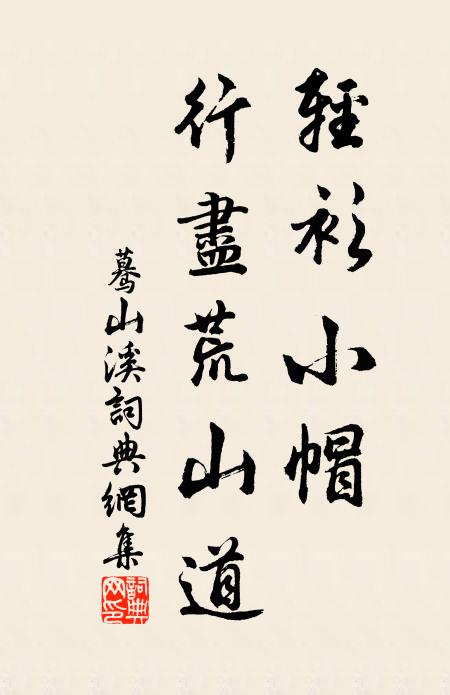 輕衫小帽
行盡荒山道
驀山溪詞典網集
詞典
网印